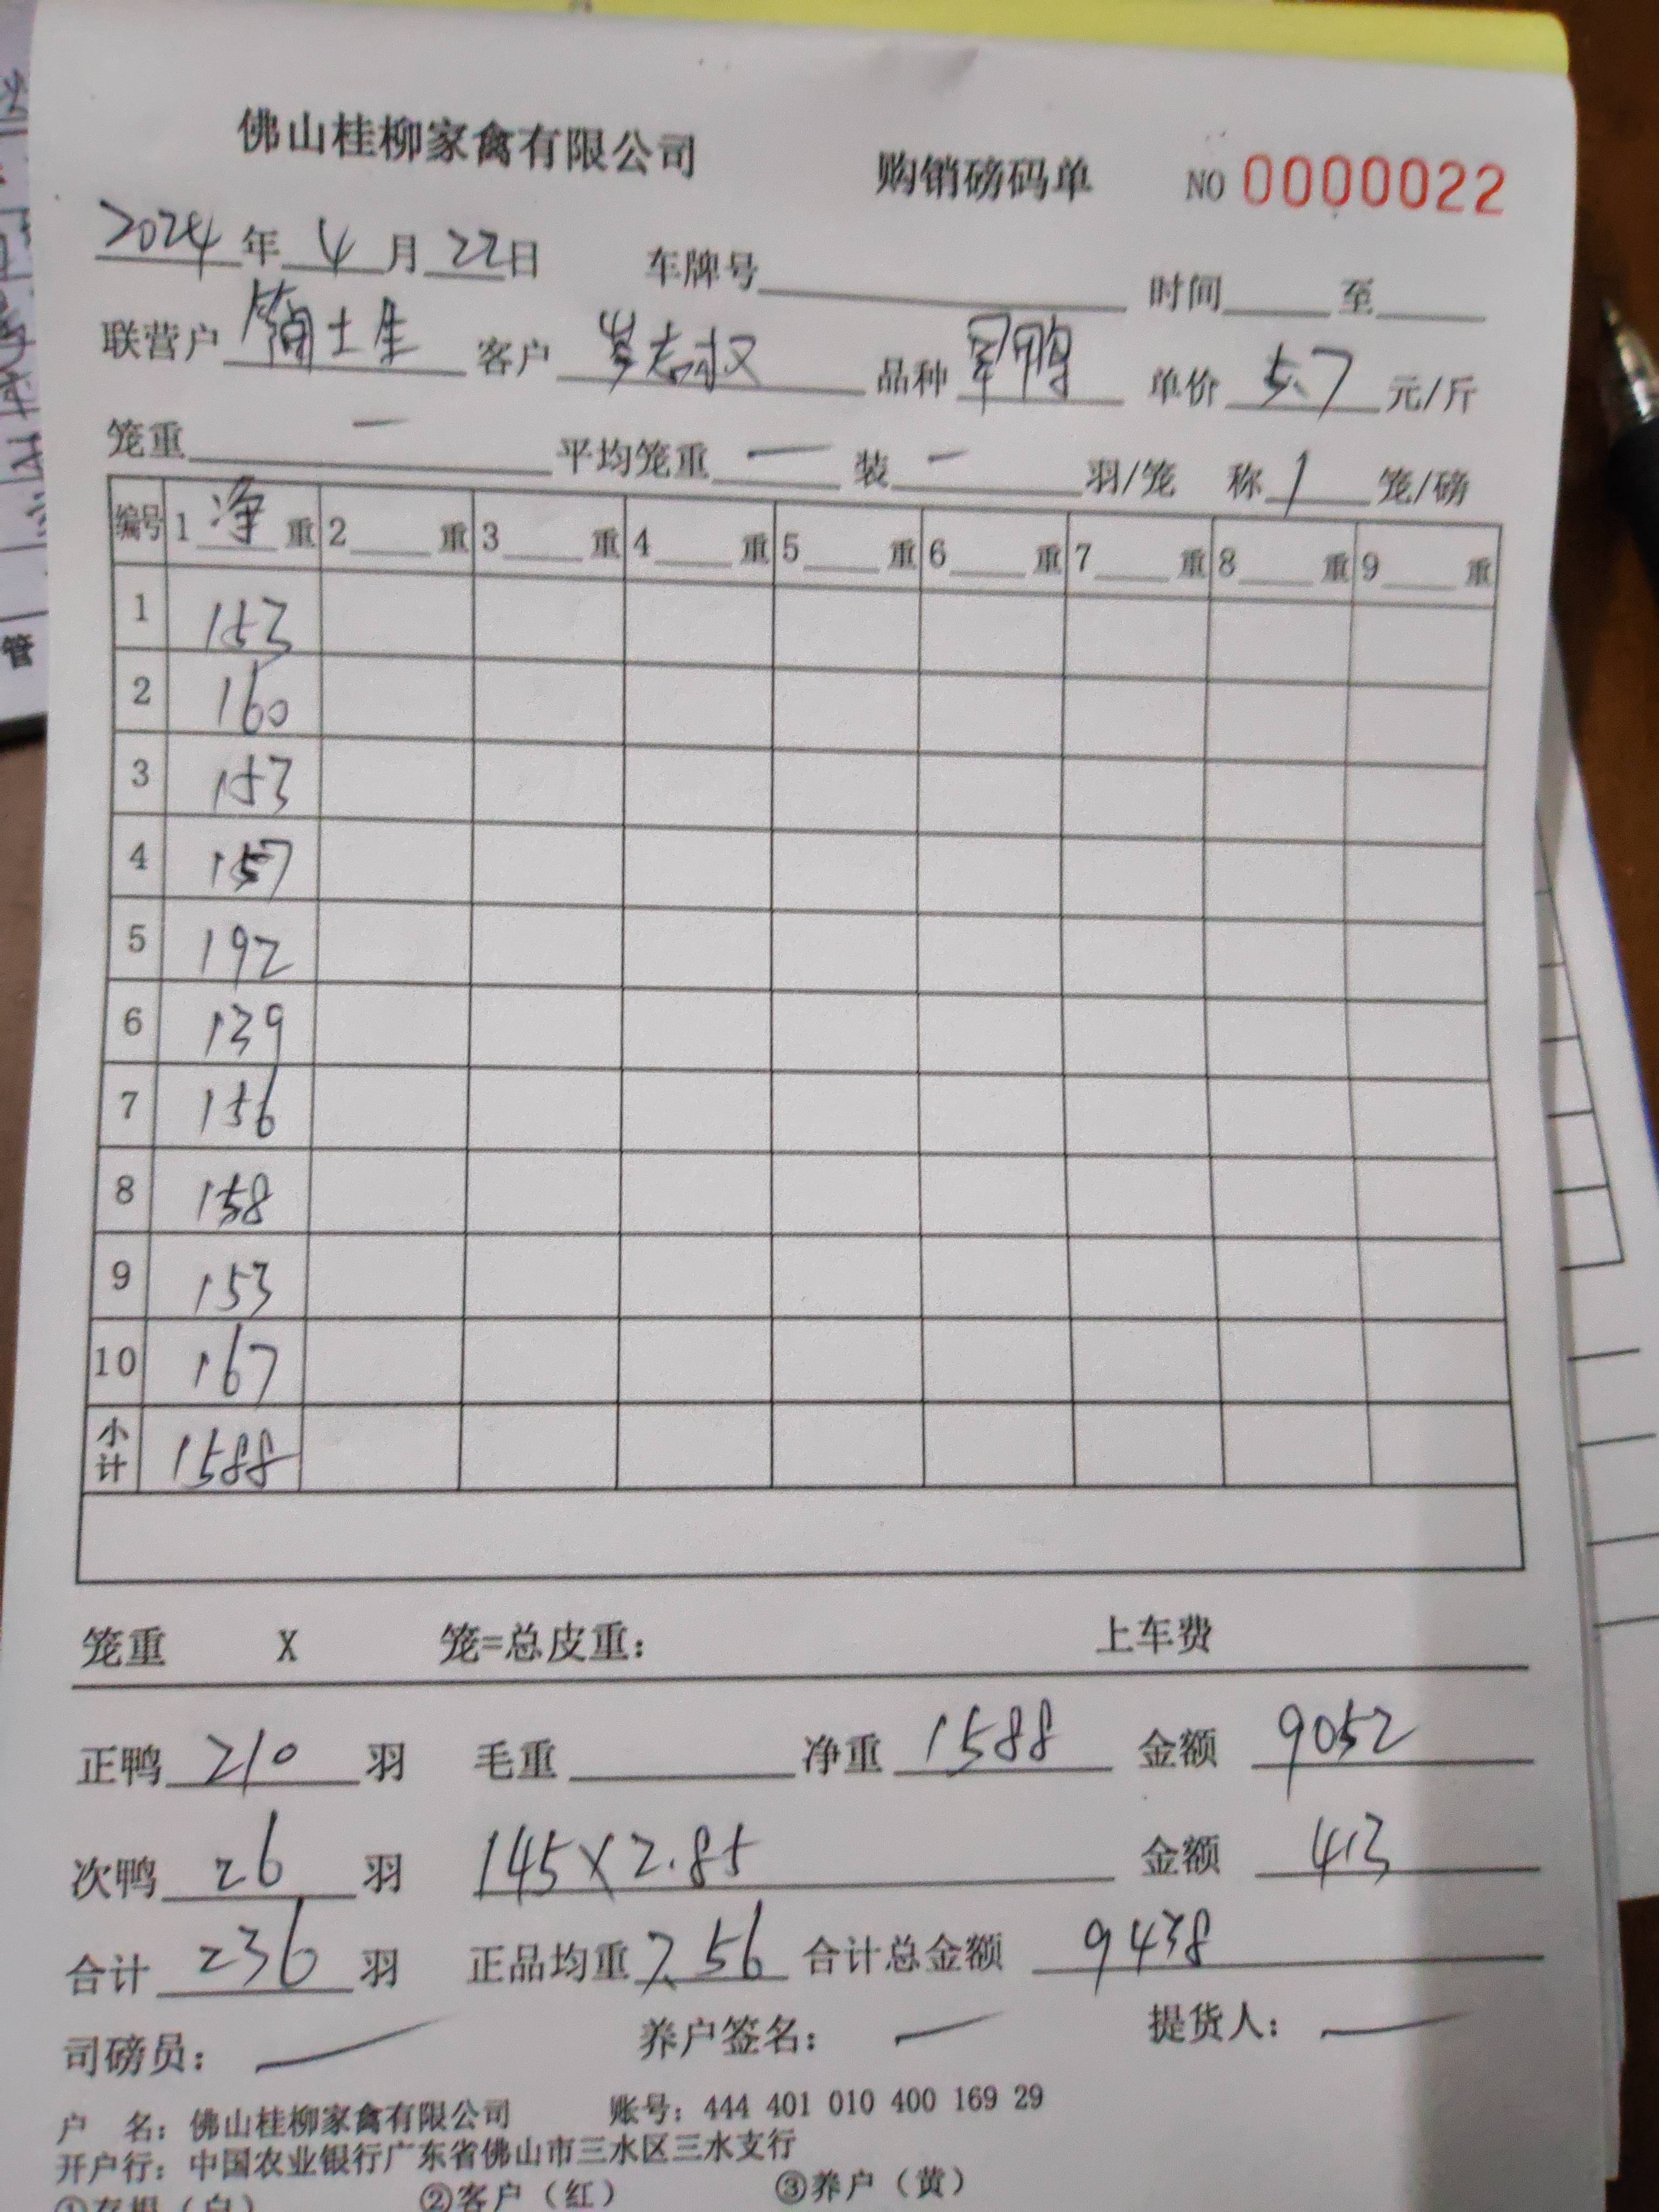 佛山桂柳家禽有限公司 购销磅码单 NO 0000022
2024年 4月 22日 车牌号 时间 至
联营户 简土生 客户 岑志权 品种 军鸭 单价 5.7 元/斤
笼重 一 平均笼重 一 装 一 羽/笼 称 1 笼/磅
编号 1 净 重 2 重 3 重 4 重 5 重 6 重 7 重 8 重 9 重
1 153
2 160
3 153
4 157
5 192
6 139
7 156
8 158
9 153
10 167
小计 1588
笼重 X 笼=总皮重： 上车费
正鸭 210 羽 毛重 净重 1588 金额 9052
次鸭 26 羽 145×2.85 金额 413
合计 236 羽 正品均重 7.56 合计总金额 9438
司磅员： 养户签名： 提货人：
户 名：佛山桂柳家禽有限公司 账号：444 401 010 400 169 29
开户行：中国农业银行广东省佛山市三水区三水支行
①存根（白） ②客户（红） ③养户（黄）
管